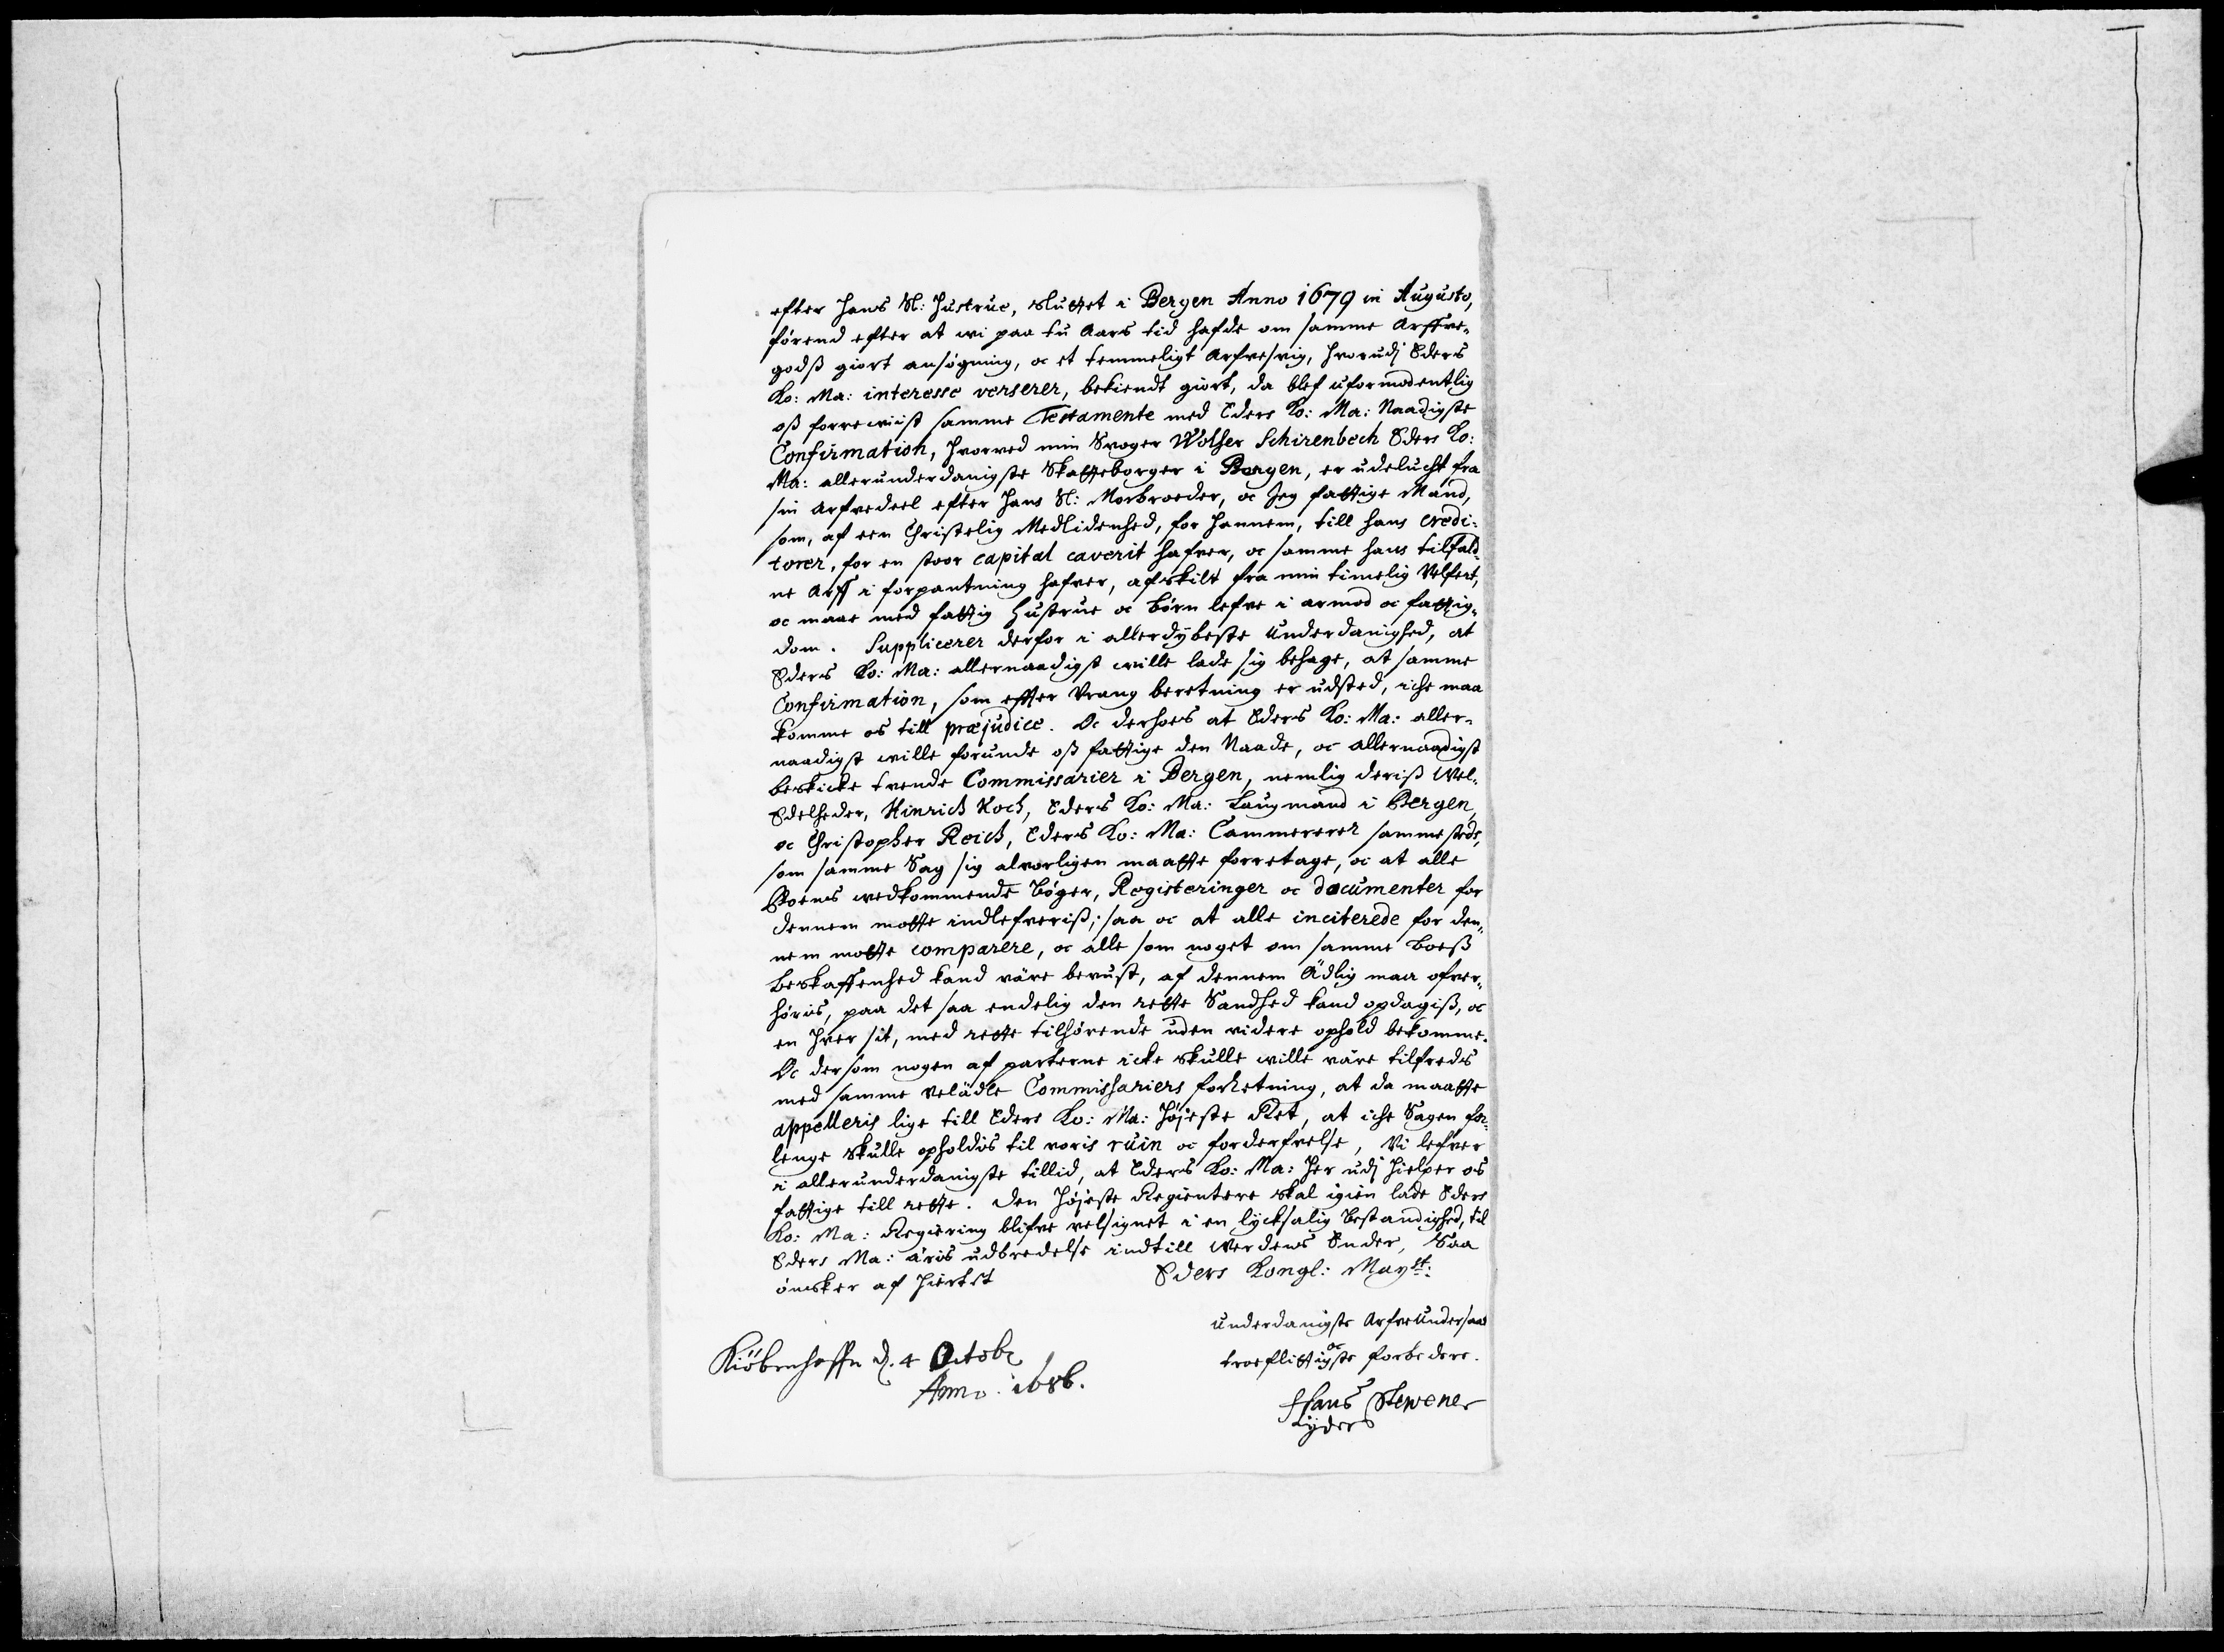 efter hans Sl: Hustrue, sluttet i Bergen Anno 1679 in Augusto,
førend efter at wi paa tu Aars tid hafde om samme Arffve-
godß giort ansøgning, oc et temmeligt Arfvesvig, hvorudj Eders
Ko: Ma: interesse verserer, bekiendt giort, da blef uformodentlig
oß forrewiist samme Testamente med Eders Ko: Ma: Naadigste
Confirmation, hvorved min Svoger Wolher Schirenbech Eders Ko:
Ma: allerunderdanigste Skatteborger i Bergen, er udelucht fra
sin Arfvedeel efter hans Sl: Morbroeder, oc Jeg fattige Mand,
som, af een Christelig Medlidenhed, for hannem, till hans credi-
torer, for en stoor capital caverit hafver, oc samme hans tilfald-
ne Arff i forpantning hafver, afskilt fra min timelig Velfert,
oc maae med fattig Hustrue oc børn lefve i armod oc fattig-
dom. Supplicerer derfor i allerdybeste Underdanighed, at
Eders Ko: Ma: allernaadigst wille lade sig behage, at samme
Confirmation, som effter Vrang beretning er udsted, iche maa
komme os till præjudice. Oc derhoes at Eders Ko: Ma: aller-
naadigst wille forunde oß fattige den Naade, oc allernaadigst
beskicke tvende Commissarier i Bergen, nemlig deriß Wel-
Edelheder, Hinrich Koch, Eders Ko: Ma: Laugmand i Bergen,
oc Christopher Reich, Eders Ko: Ma: Cammererer sammesteds,
som samme Sag sig alvorligen maatte forretage, oc at alle
Boens wedkommende bøger, Registeringer oc documenter for
dennem motte indlefveriß; saa oc at alle inciterede for den-
nem motte comparere, oc alle som noget om samme boeß
beskaffenhed kand väre bevust, af dennem Ädlig maa ofver-
høris, paa det saa endelig den rette Sandhed kand opdagiß, oc
en hver sit, med rette tilhørende uden videre ophold bekomme.
Oc dersom nogen af parterne icke skulle wille väre tilfreds
med samme velädle Commissariers forretning, at da maatte
appelleris lige till Eders Ko: Ma: Højeste Ret, at iche Sagen for-
lenge skulle opholdis til voris ruin oc forderfvelse, Vi lefver
i allerunderdanigste tillid, at Eders Ko: Ma: her udj hielper os
fattige till rette. Den Højeste Regientere skal igien lade Eders
Ko: Ma: Regiering blifve velsignet i en lycksalig bestandighed, til
Eders Ma: äris udbredelse indtill Werdens Ender, Saa
ønsker af hiertet
Eders Kongl: Mayst:
underdanigste Arfveundersaat
oc
troeflittigste forbedere.
Kiøbenhaffn d. 4 Octobr
Anno. 1686.
Hans Stewener
Lyders